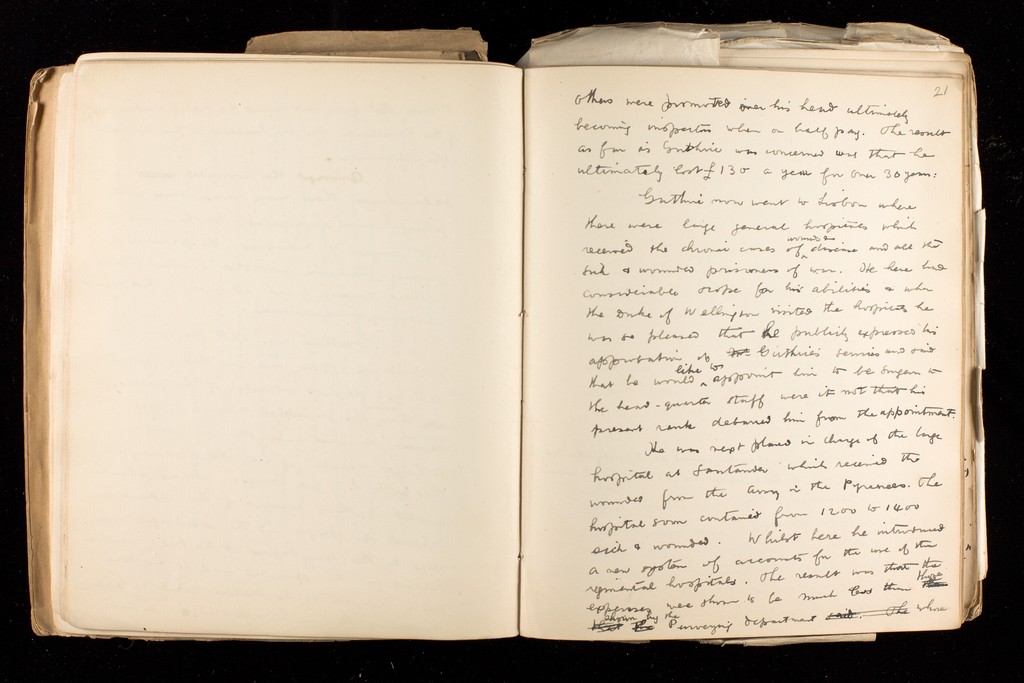 21
others were promoted over his head ultimately
becoming inspectors when on half pay. The result
as far as Guthrie was concerned was that he
ultimately lost £130 a year for over 30 years:
Guthrie now went to Lisbon where
there were large general hospitals which
received the chronic cases of wounds & disease and all the
sick & wounded prisoners of war. He here had
considerable scope for his abilities & when
the Duke of Wellington visited the hospitals he
was so pleased that he publicly expressed his
approbation of Guthrie's services and said
that he would like to appoint him to be surgeon to
the head-quarter staff were it not that his
present rank debarred him from the appointment.
He was next placed in charge of the large
hospital at Santander which received the
wounded from the Army in the Pyrenees. The
hospital soon contained from 1200 to 1400
sick & wounded. Whilst here he introduced
a new system of accounts for the use of the
regimental hospitals. The result was that the
expenses were shown to be much less than those
shown by the Purveying department said. The whole